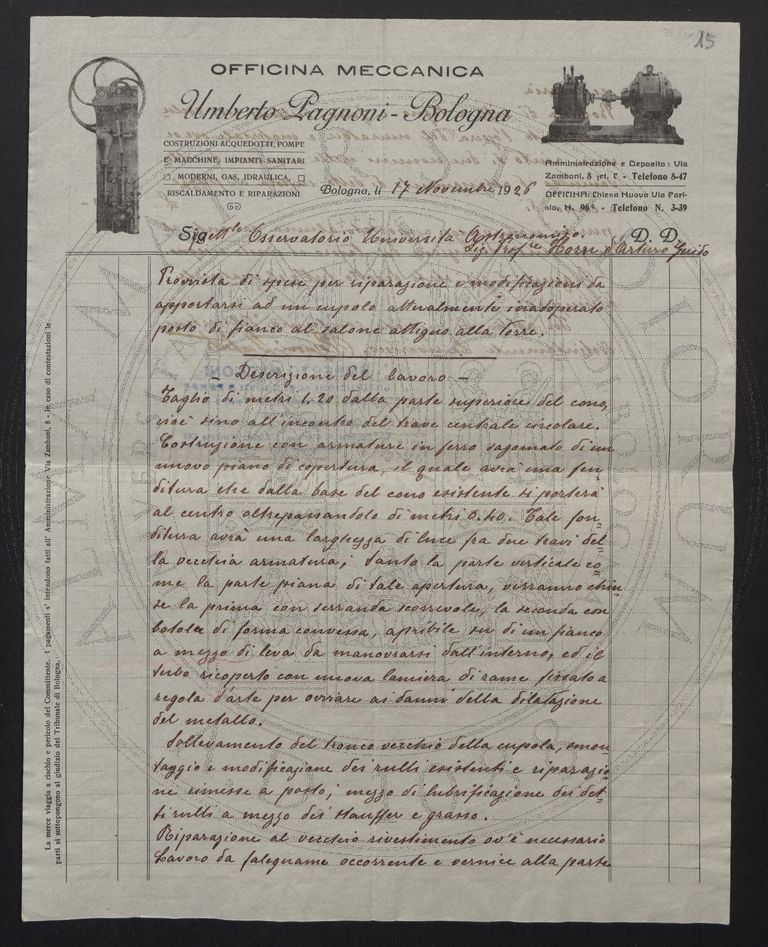 15
OFFICINA MECCANICA
Umberto Pagnoni - Bologna
COSTRUZIONI ACQUEDOTTI, POMPE
E MACCHINE, IMPIANTI SANITARI
MODERNI, GAS, IDRAULICA,
RISCALDAMENTO E RIPARAZIONI
Amministrazione e Deposito: Via
Zamboni, 8 int. C - Telefono 8-47
OFFICINA: Chiesa Nuova Via Pari-
sio, N. 96 - Telefono N. 3-39
Bologna, li 17 Novembre 1926
Sig Osservatorio Università Astronomico. D. D.
Sig. Prof.re Horn d'Arturo Guido
Provvista di spese per riparazione e modificazioni da
apportarsi ad un cupolo attualmente inadoperato
posto di fianco al salone attiguo alla Torre.
- Descrizione del lavoro -
Taglio di metri 1,20 dalla parte superiore del cono,
cioè sino all'incontro del trave centrale circolare.
Costruzione con armature in ferro sagomato di un
nuovo piano di copertura, il quale avrà una fen
ditura che dalla base del cono esistente si porterà
al centro oltrepassandolo di metri 0.40. Tale fen
ditura avrà una larghezza di luce fra due travi del
la vecchia armatura; tanto la parte verticale co
me la parte piana di tale apertura, verranno chiu
se la prima con serranda scorrevole, la seconda con
botola di forma convessa, apribile su di un fianco
a mezzo di leva da manovrarsi dall'interno, ed il
tutto ricoperto con nuova lamiera di rame fissato a
regola d'arte per ovviare ai danni della dilatazione
del metallo.
Sollevamento del tronco vecchio della cupola, smon
taggio e modificazione dei rulli esistenti e riparazio
ne rimesse a posto, mezzo di lubrificazione dei det
ti rulli a mezzo dei stauffer e grasso.
Riparazione al vecchio rivestimento ov'è necessario
Lavoro da falegname occorrente e vernice alla parte
La merce viaggia a rischio e pericolo del Committente. I pagamenti s' intendono fatti all' Amministrazione Via Zamboni, 8 - In caso di contestazioni le
parti si sottopongono al giudizio del Tribunale di Bologna.